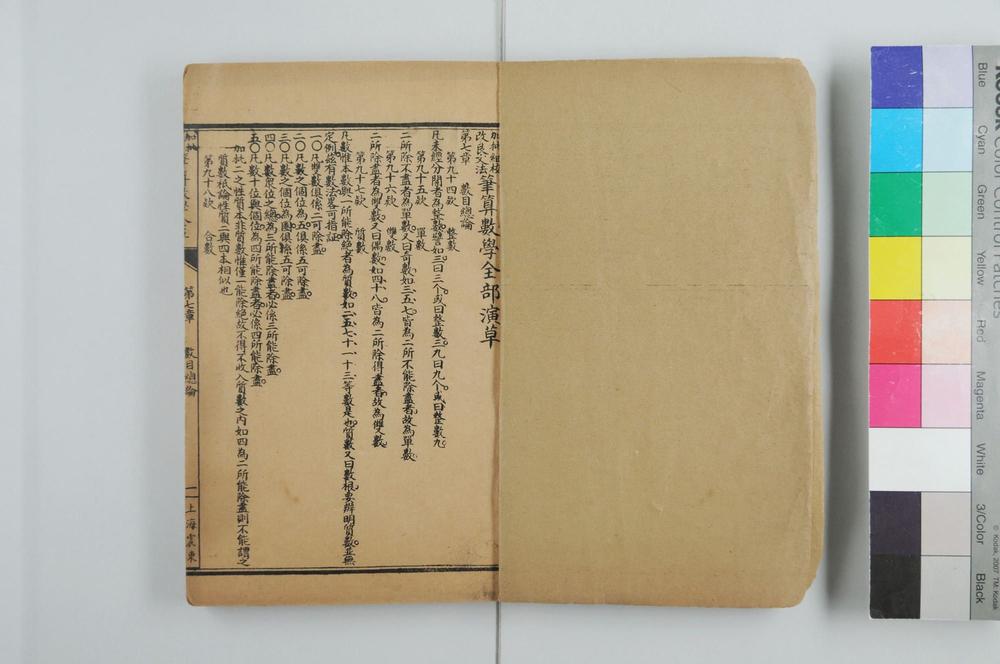 加批細校
改良文法
筆算數學全部演草
第七章 數目總論
第九十四欵 整數
凡未經分開者為整數譬如三曰三个或曰整數三九曰九个或曰整數九
第九十五欵 單數
二所除不盡者為單數又曰奇數如三五七皆為二所不能除盡者故為單數
第九十六欵 雙數
二所除盡者為雙數又曰偶數如四十八皆為二所除得盡者故為雙數
第九十七欵 質數
凡數惟本數與一所能除絕者為質數如二五七十一十三等數是也質數又曰數根要辨明質數並無
定例茲有數法畧可指証
一〇凡雙數俱係二可除盡
二〇凡數之個位為五俱係五可除盡
三〇凡數之個位為圈俱係五可除盡
四〇凡數衆位之總為三所能除盡者必係三所能除盡
五〇凡數十位與個位為四所能除盡者必係四所能除盡
加批二之性質本非質數惟僅一能除絕故不得不收入質數之內如四為二所能除盡則不能謂之
質數根論性質二與四本相似也
第九十八欵 合數
第七章 數目總論 一 上海震東
Kodak Color Control Patches
Blue
Cyan
Green
Yellow
Red
Magenta
White
3/Color
Black
© Kodak, 2007 TM: Kodak